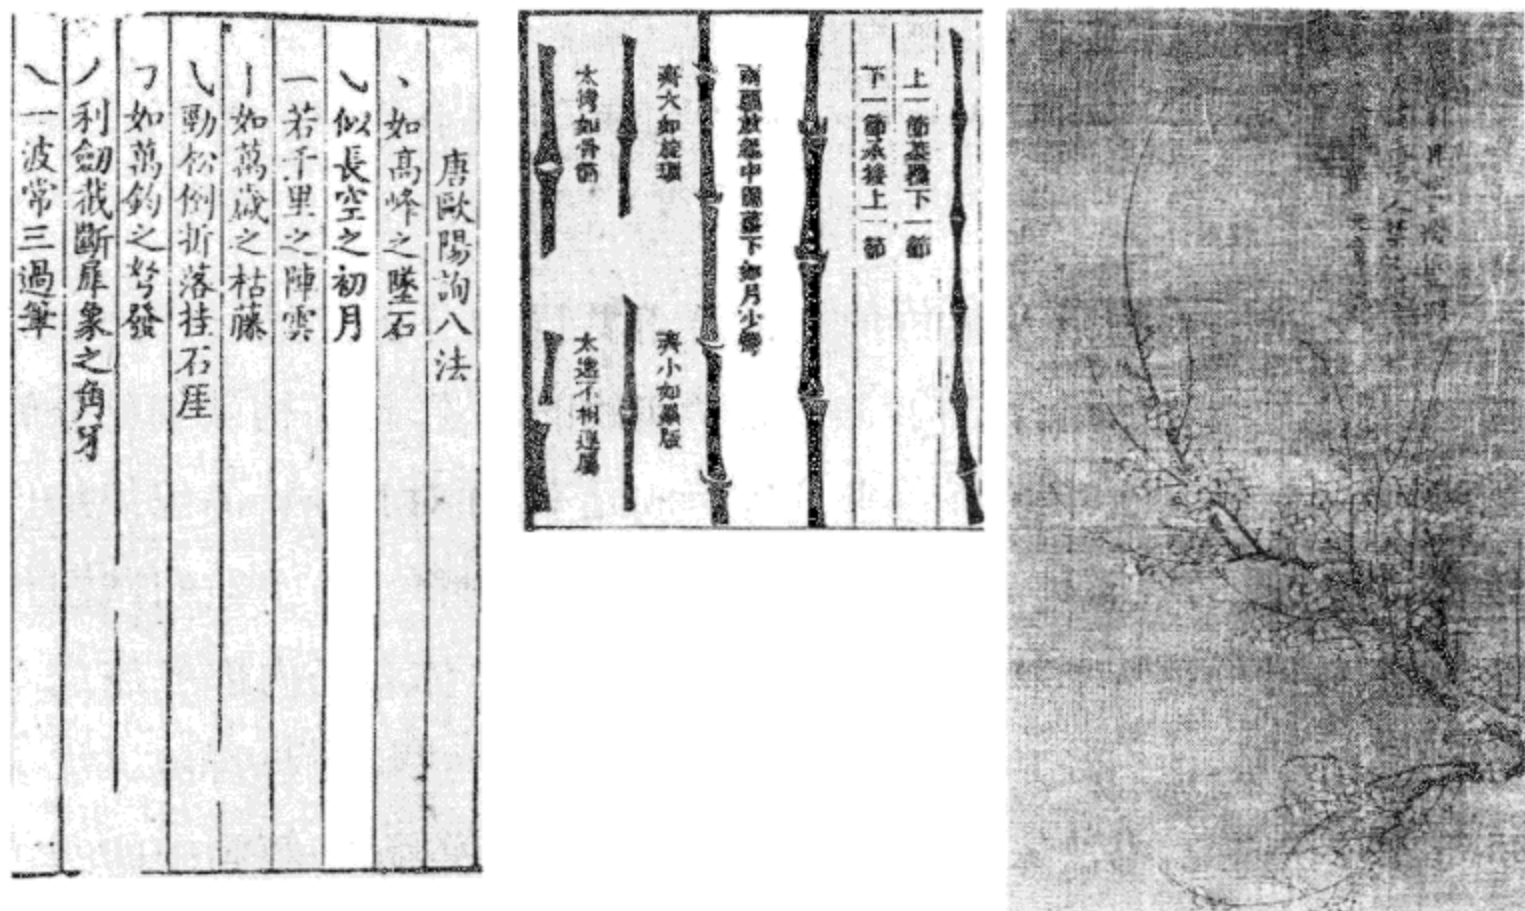 唐歐陽詢八法
丶如高峰之墜石
㇃似長空之初月
一若千里之陣雲
丨如萬歲之枯藤
㇂勁松倒折落挂石厓
㇆如萬鈞之弩發
丿利劒截斷犀象之角牙
㇏一波常三過筆
上一節蓋攬下一節
下一節承接上一節
兩頭放起中間落下如月少彎
齊大如旋環
齊小如墨版
太彎如骨節
太遠不相連屬